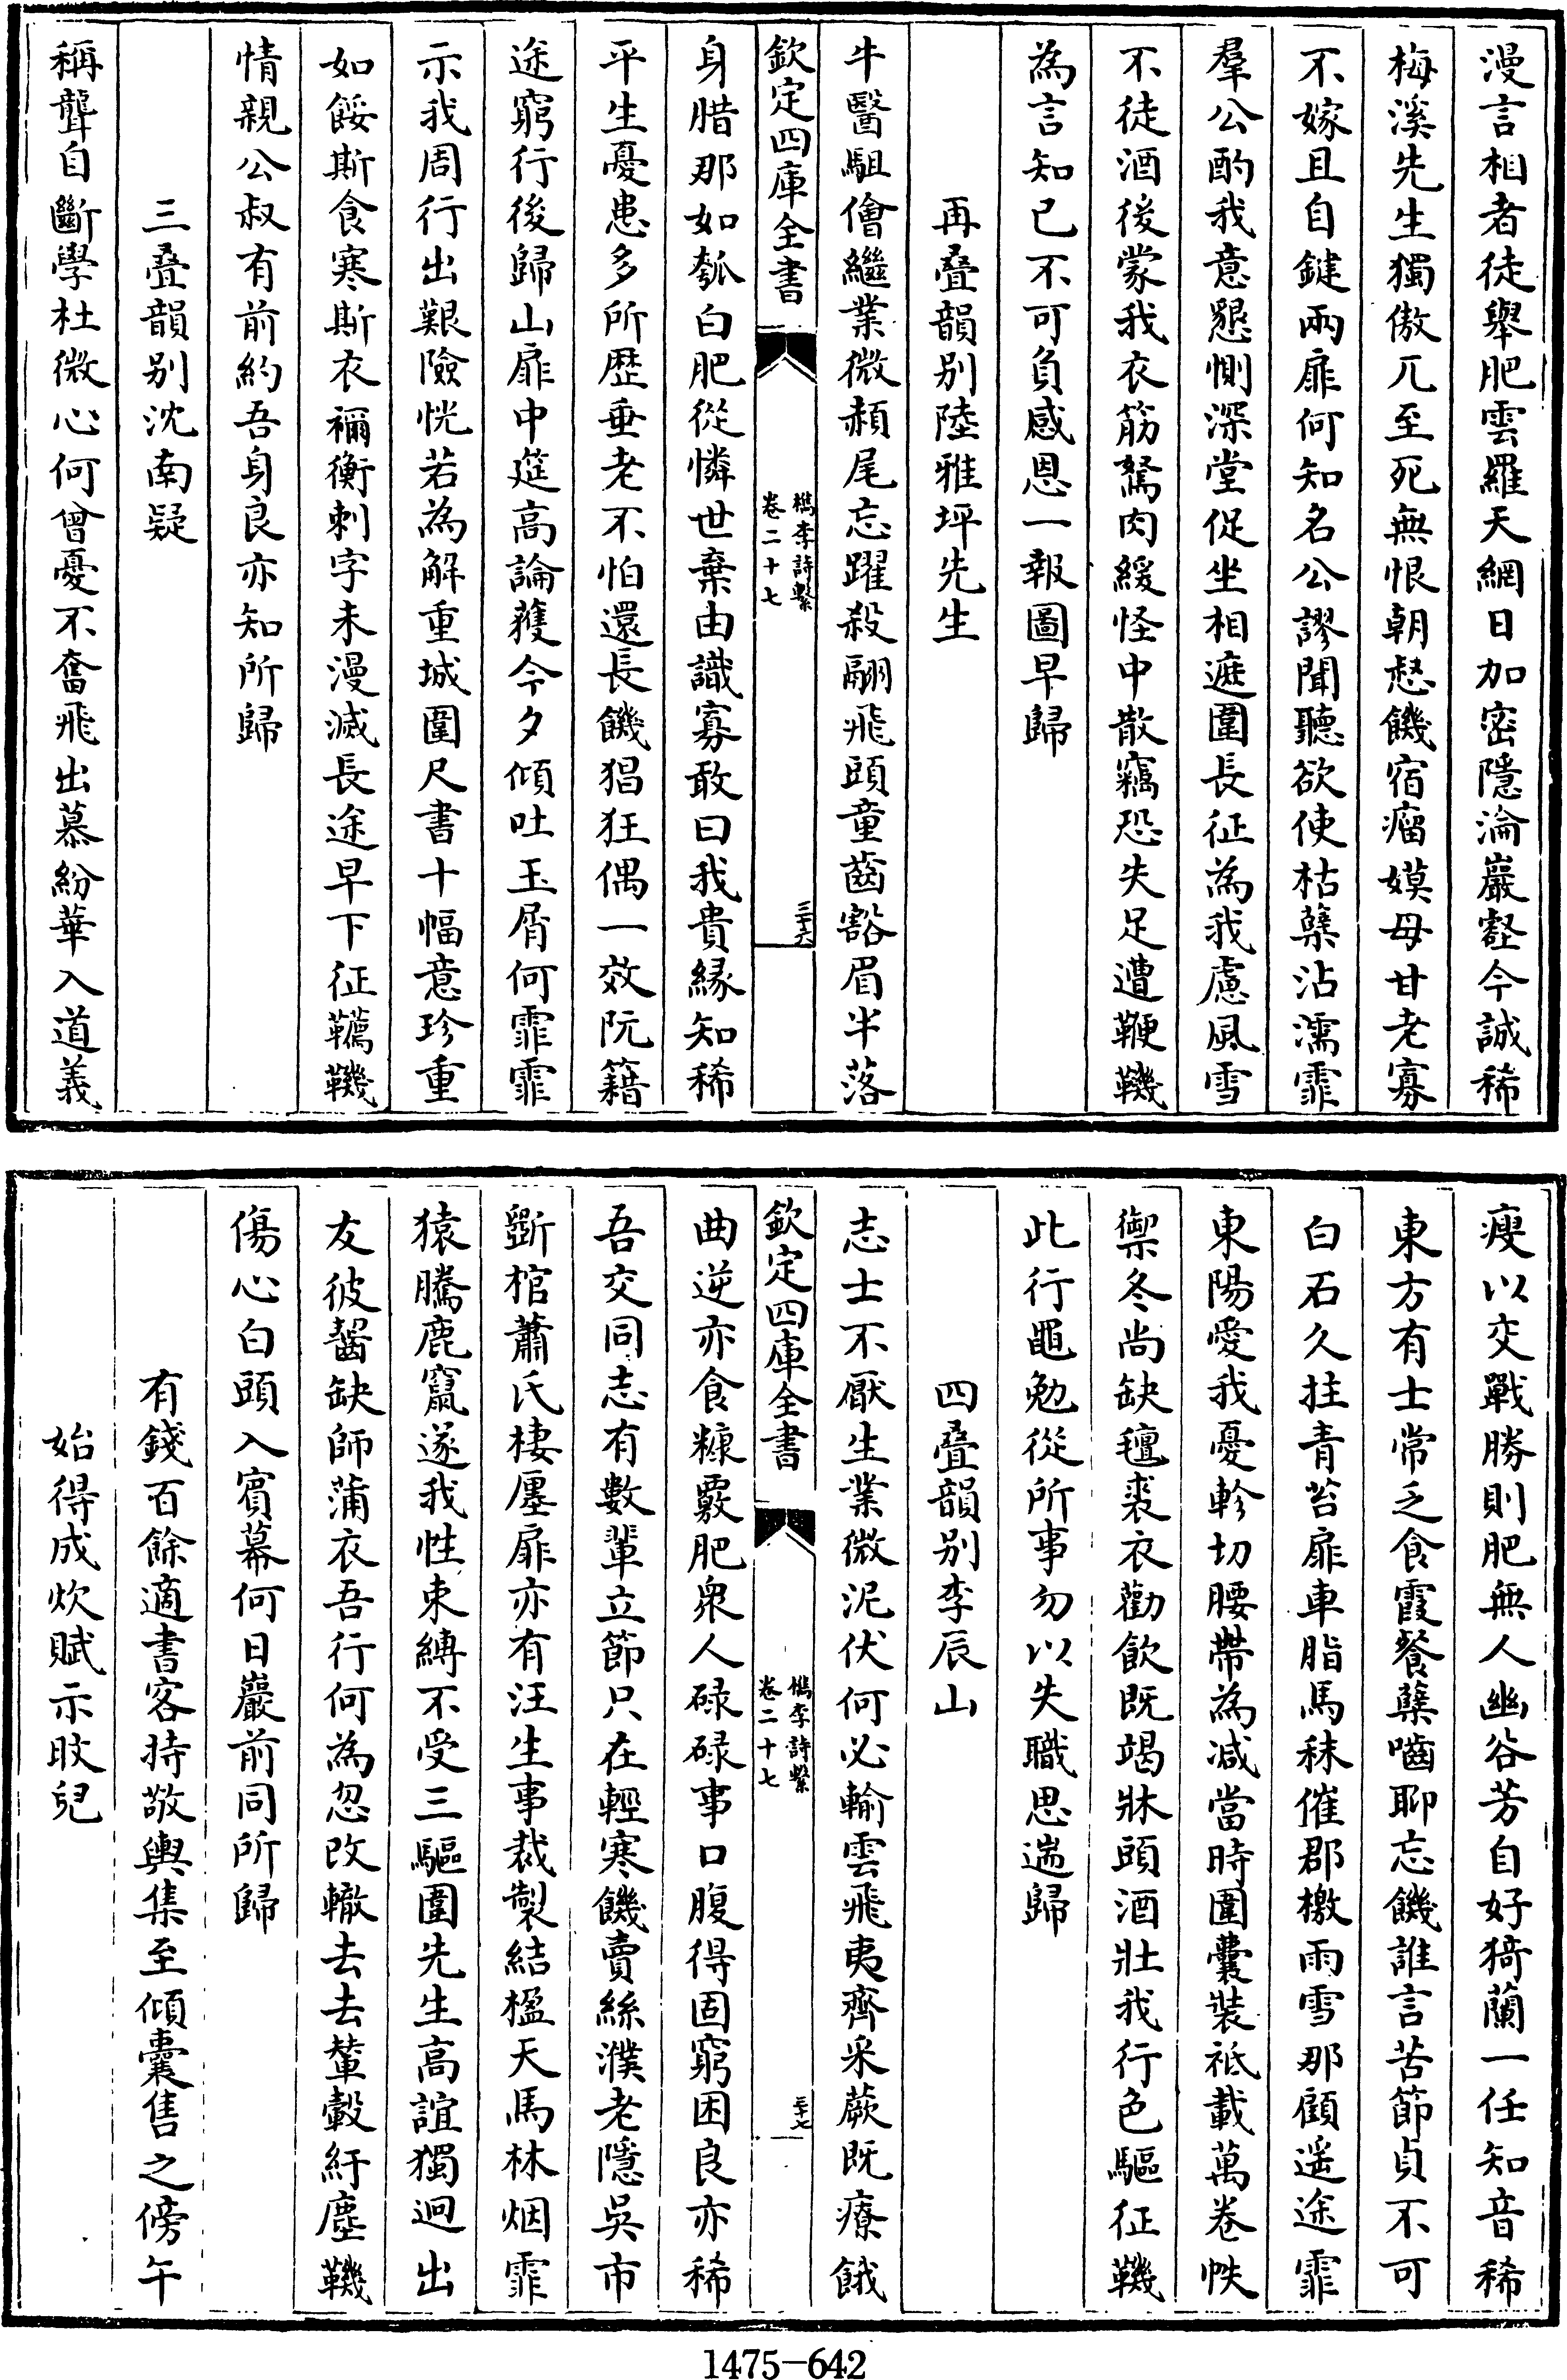 漫言相者徒舉肥雲羅天網日加密隱淪巖壑今誠稀
梅溪先生獨傲兀至死無恨朝愁饑宿瘤嫫母甘老寡
不嫁且自鍵兩扉何知名公謬聞聽欲使枯蘖沾濡霏
羣公酌我意懇惻深堂促坐相遮圍長征為我慮風雪
不徒酒後蒙我衣筋駑肉緩怪中散竊恐失足遭鞭鞿
為言知已不可負感恩一報圖早歸
再叠韻别陸雅坪先生
牛醫駔儈繼業微赬尾忘躍殺翮飛頭童齒豁眉半落
欽定四庫全書
檇李詩繫
卷二十七
三十六
身腊那如瓠白肥從憐世棄由識寡敢曰我貴緣知稀
平生憂患多所歴垂老不怕還長饑猖狂偶一效阮籍
途窮行後歸山扉中筵高論蒦今夕傾吐玉屑何霏霏
示我周行出艱險恍若為解重城圍尺書十幅意珍重
如餒斯食寒斯衣禰衡刺字未漫滅長途早下征韉鞿
情親公叔有前約吾身良亦知所歸
三叠韻别沈南疑
稱聾自斷學杜微心何曾憂不奮飛出慕紛華入道義
瘦以交戰勝則肥無人幽谷芳自好猗蘭一任知音稀
東方有士常乏食霞餐蘖嚙聊忘饑誰言苦節貞不可
白石久拄青苔扉車脂馬秣催郡檄雨雪那顧遥途霏
東陽愛我憂軫切腰帶為減當時圍囊裝祇載萬卷帙
禦冬尚缺氊裘衣勸飲既竭牀頭酒壯我行色驅征鞿
此行黽勉從所事勿以失職思遄歸
四叠韻别李辰山
志士不厭生業微泥伏何必輸雲飛夷齊采蕨既療餓
欽定四庫全書
檇李詩繫
卷二十七
三十七
曲逆亦食糠覈肥衆人碌碌事口腹得固窮困良亦稀
吾交同志有數輩立節只在輕寒饑賣絲濮老隱吳市
斲棺蕭氏棲廛扉亦有汪生事裁製結楹天馬林烟霏
猿騰鹿竄遂我性束縛不受三驅圍先生高誼獨迥出
友彼齧缺師蒲衣吾行何為忽改轍去去輦轂紆塵鞿
傷心白頭入賓幕何日巖前同所歸
有錢百餘適書客持敬輿集至傾囊售之傍午
始得成炊賦示旼兒
1475-642